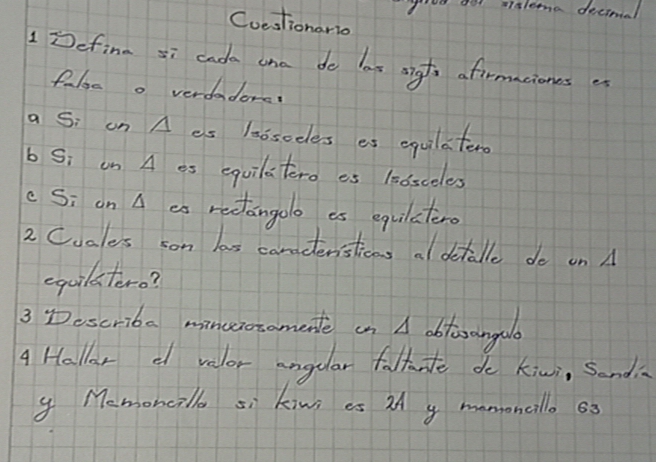 sistema decimal
Cuestionario
1 Defina si cada una de las sigts afirmaciones es
falsa o verdadera:
a Si un Δ es Isósceles es equilátero
b Si un Δ es equilátero es Isósceles
c Si un Δ es rectángulo es equilátero
2 Cuales son las características al detalle de un Δ
equilátero?
3 Describa minuciosamente un Δ obtusangulo
4 Hallar el valor angular faltante de kiwi, Sandía
y Mamoncillo si kiwi es 24 y mamoncillo 63